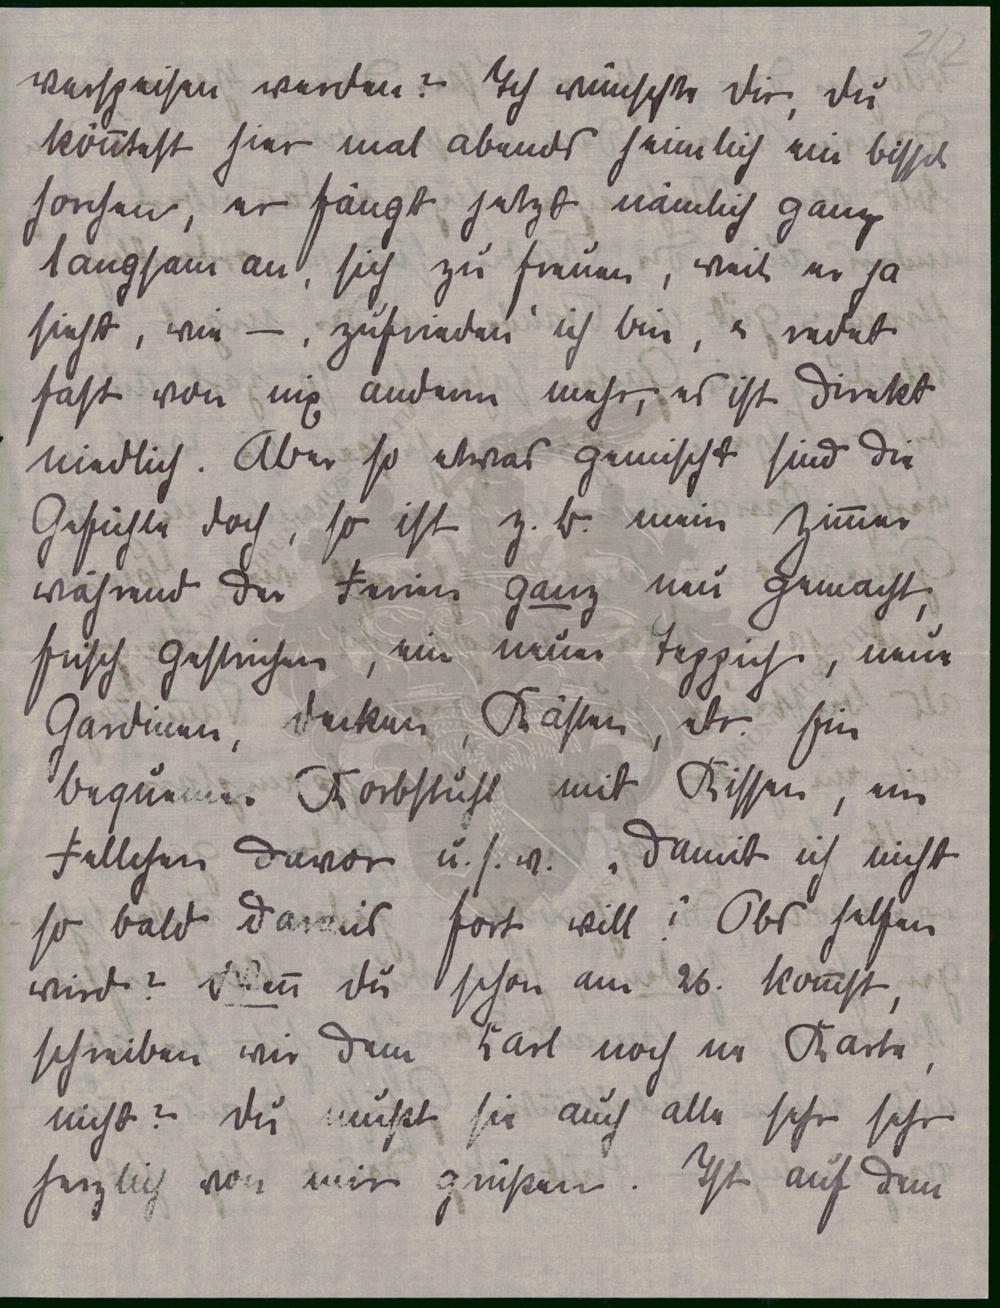 2/2
verspeisen werden? Ich wünschte dir, du
kön̄test hier mal abends heimlich ein bissel
horchen, er fängt jetzt nämlich ganz
langsam an, sich zu freuen, weil er ja
sieht, wie —, zufrieden' ich bin, er redet
fast von nix anderm mehr, es ist direkt
niedlich. Aber so etwas gemischt sind die
Gefühle doch, so ist z. b. mein Zim̄er
während der Ferien ganz neu gemacht,
frisch gestrichen, ein neuer Teppich, neue
Gardinen, decken, Kästen, etc. Ein
bequemer Korbstuhl mit Kissen, ein
Fellchen davor u. s. w. „damit ich nicht
so bald davais fort will! Obs helfen
wird? Wen̄ du schon am 26. kom̄st,
schreiben wir dem Carl noch ne Karte,
nicht? du mußt sie auch alle sehr sehr
herzlich von mir grüßen. Ist auf dem